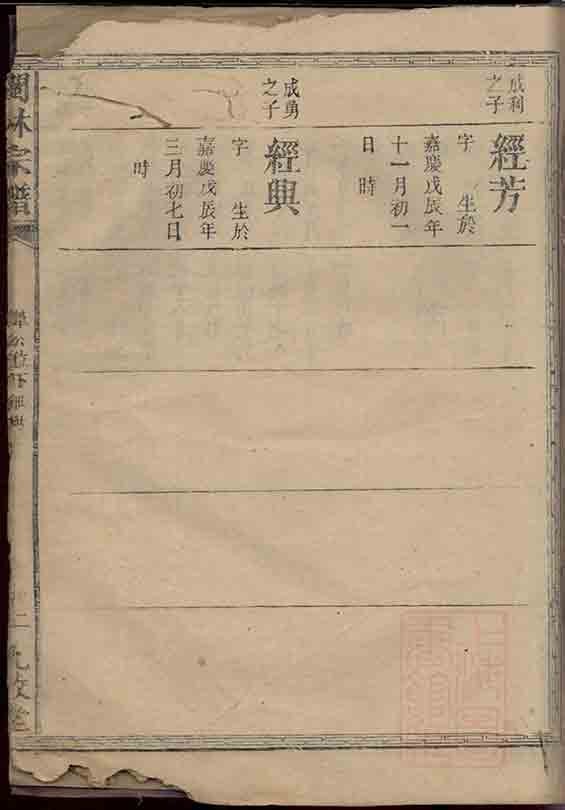 成利
之子
經芳
字 生於
嘉慶戊辰年
十一月初一
日 時
成勇
之子
經興
字 生於
嘉慶戊辰年
三月初七日
時
林宗譜
二